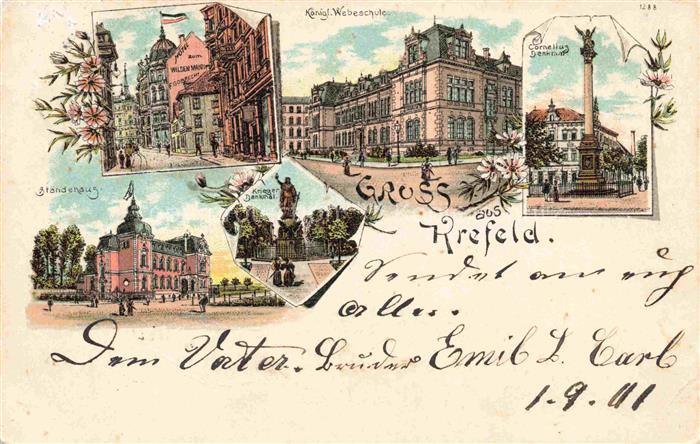 Königl. Webeschule.
1288
Hotel
zum
WILDEN MANN
Cornelius
Denkmal.
Ständehaus
Krieger
Denkmal.
GRUSS
aus
Krefeld.
Sendet an euch
alle.
Dem Vater. Bruder Emil L. Carl
1.9.01